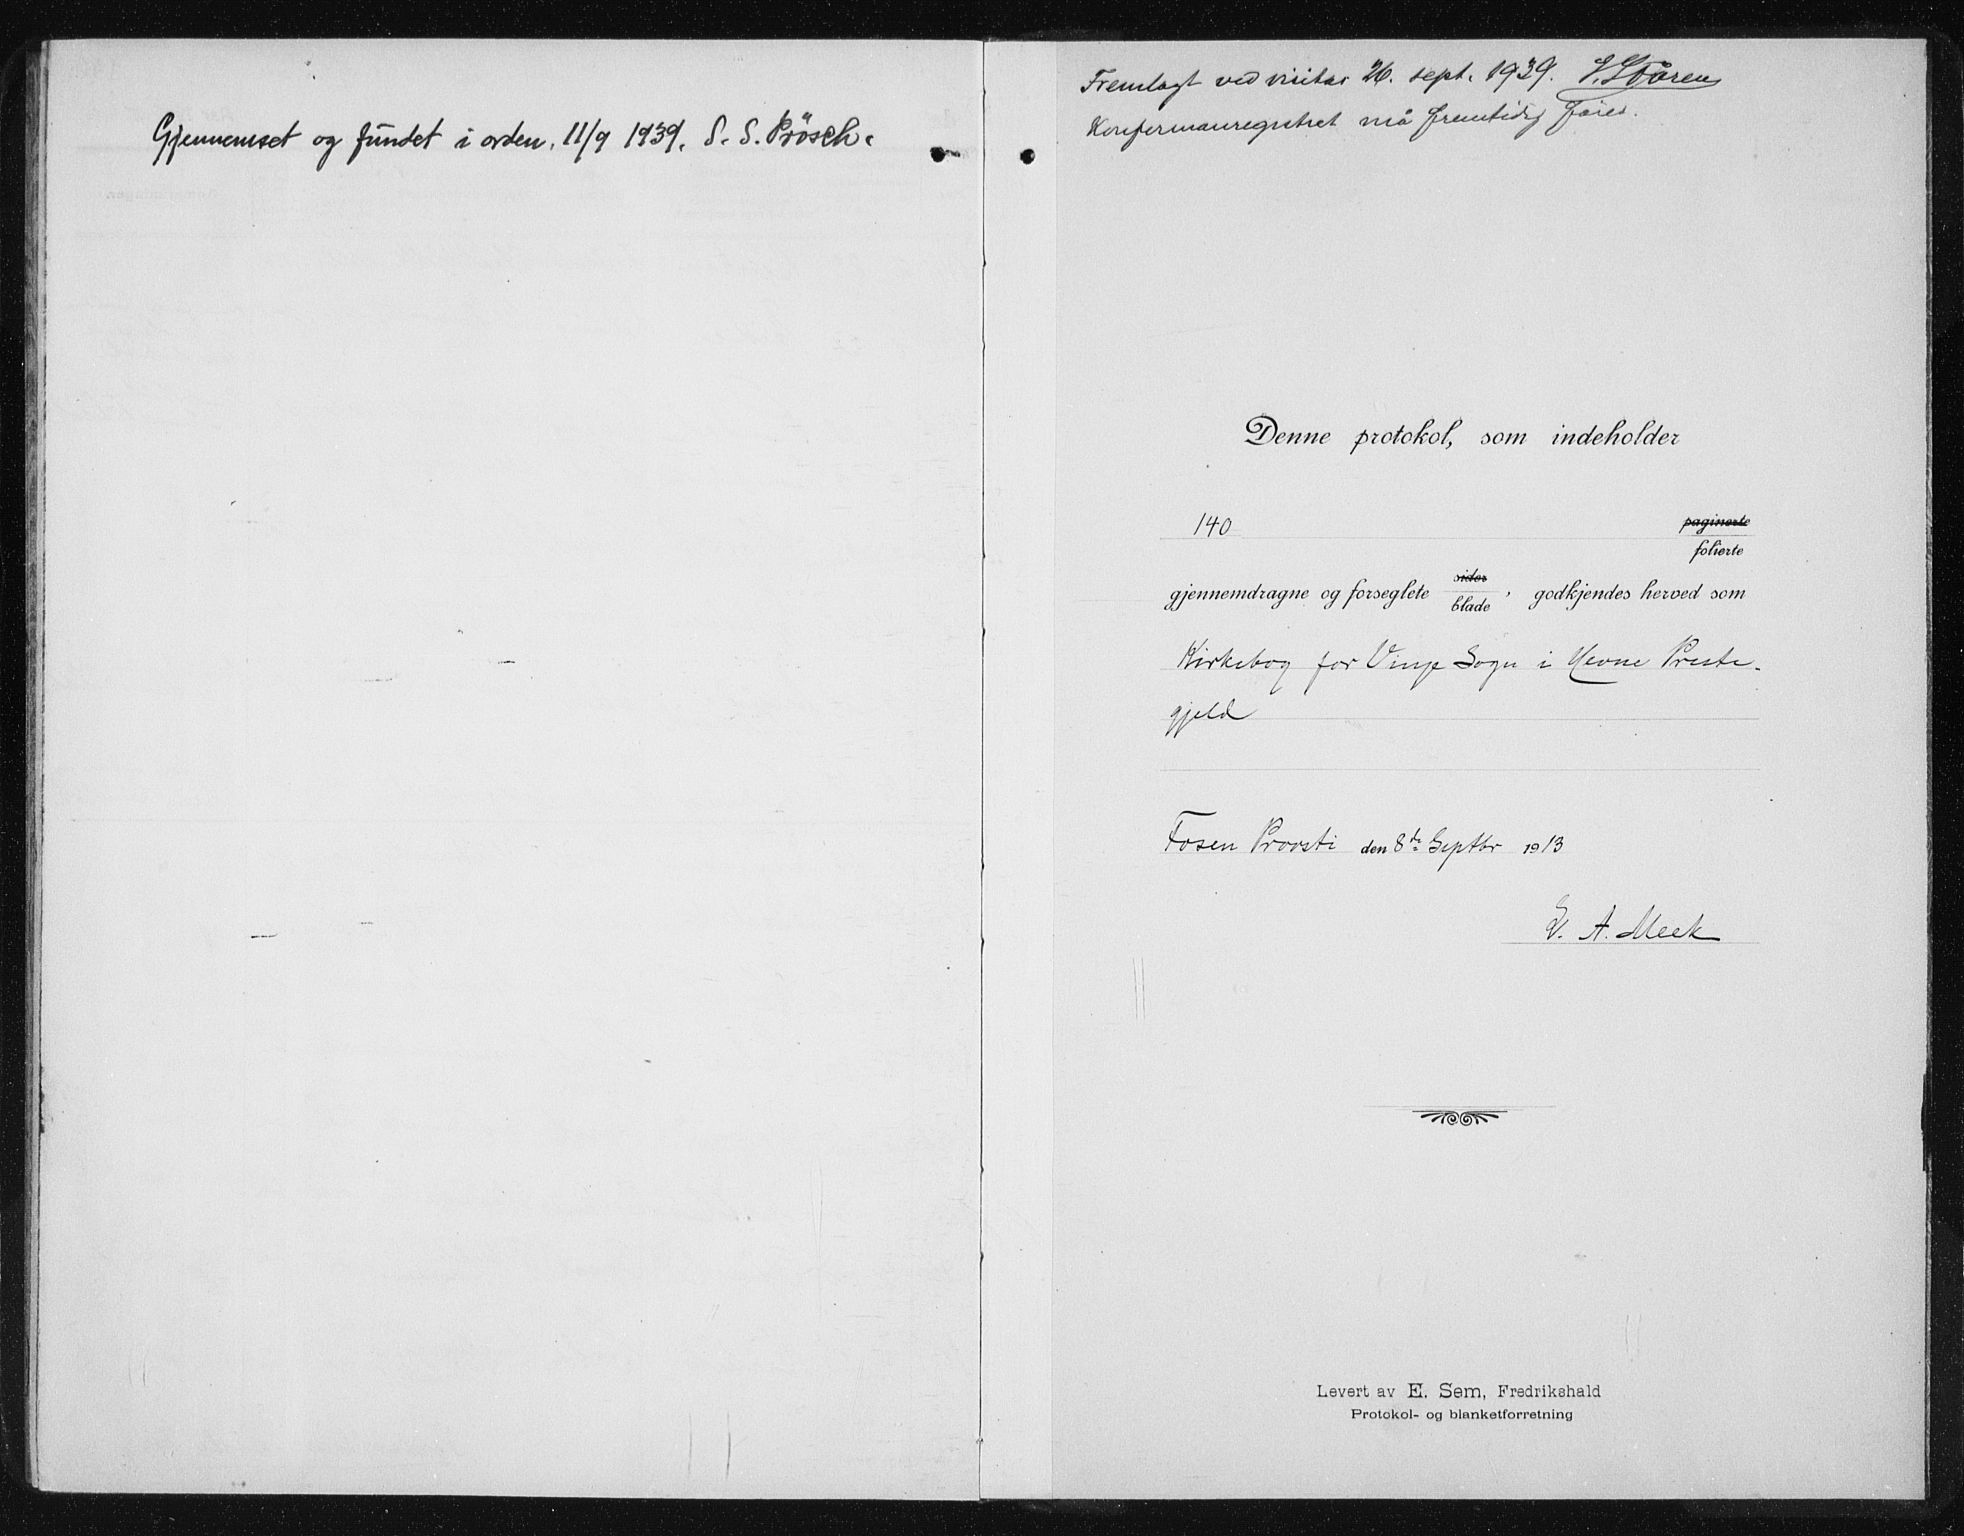 Gjennemset og fundet i orden. 11/9 1939. S. S. Prösch.
Fremlagt ved visitas 26. sept. 1939. J. Støren
Konfirmanregistret må fremtidig føres.
Denne protokol, som indeholder
140 paginerte
folierte
gjennemdragne og forseglete sider blade, godkjendes herved som
Kirkebog for Vinje Sogn i Hevne Preste-
gjeld
Fosen Provsti den 8de Septbr 1913
A. Meek
Levert av E. Sem, Fredrikshald
Protokol- og blanketforretning